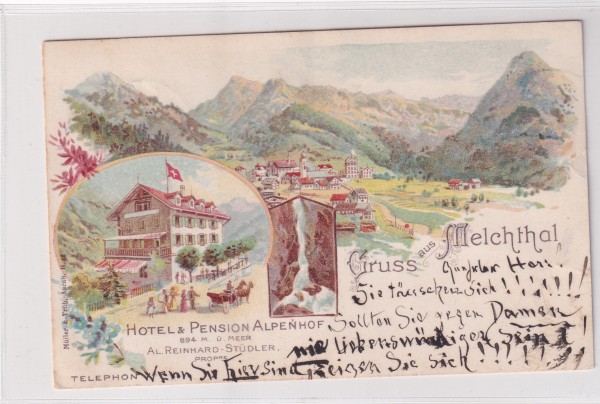 Gruss aus Melchthal
Herr!
Sie täuschen Sich!!!!!!!!!
Sollten Sie gegen Damen
nie Liebenswürdiger sein!
Wenn Sie hier sind zeigen Sie sich!!!!
HOTEL & PENSION ALPENHOF
894 M. Ü. MEER
AL. REINHARD-STUDLER,
PROPRE
TELEPHON
Müller &